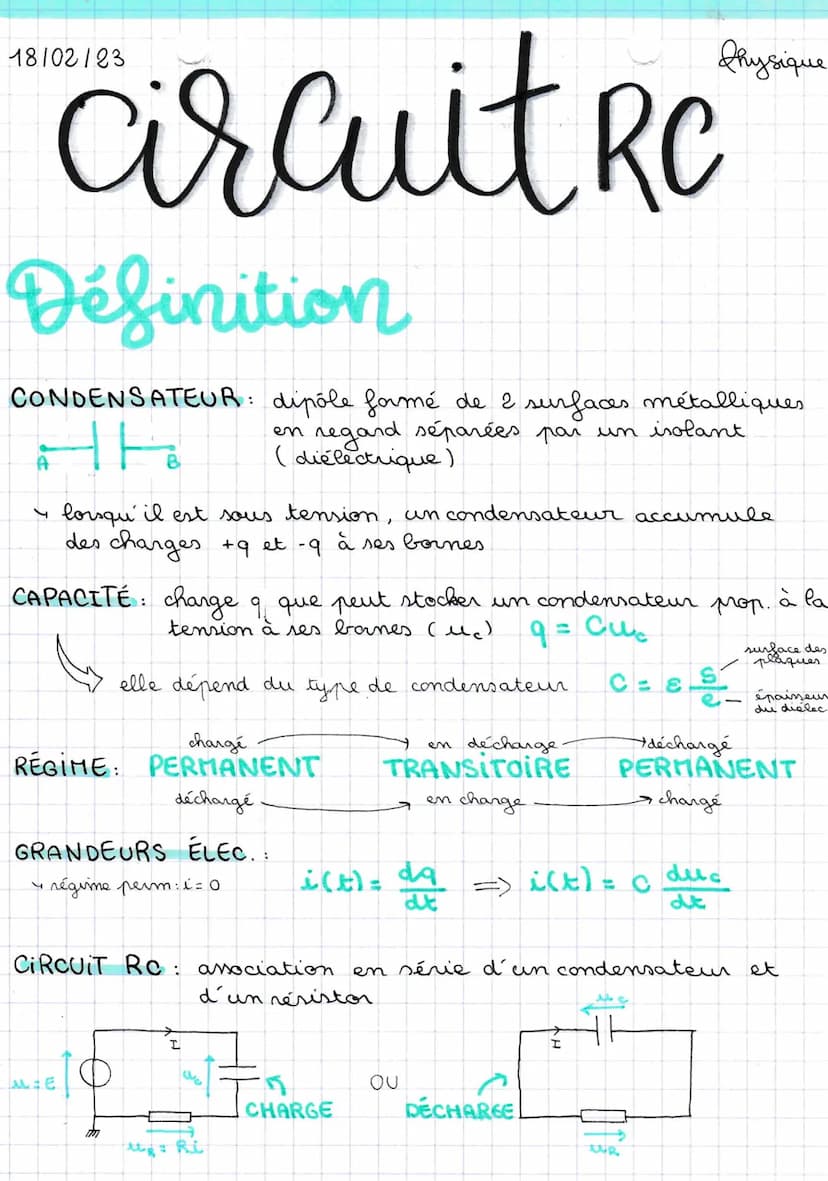 18/02/23
Physique
Circuit RC
Définition
CONDENSATEUR : dipôle formé de 2 surfaces métalliques
en regard séparées par un isolant
(diélectrique)
A B
↳ lorsqu'il est sous tension, un condensateur accumule
des charges +q et -q à ses bornes
CAPACITÉ : charge q que peut stocker un condensateur prop. à la
tension à ses bornes (uc) q = Cuc
elle dépend du type de condensateur C = ε S/e
surface des
plaques
épaisseur
du diélec
chargé → en décharge → déchargé
RÉGIME : PERMANENT TRANSITOIRE PERMANENT
déchargé → en charge → chargé
GRANDEURS ÉLEC. :
↳ régime perm : i = 0 i(t) = dq/dt ⇒ i(t) = C duc/dt
CIRCUIT RC : association en série d'un condensateur et
d'un résistor
I
u = E
uc
CHARGE
uR = Ri
OU
uc
I
DÉCHARGE
uR